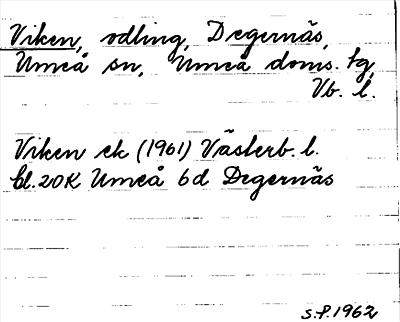 Viken, odling, Degernäs,
Umeå sn, Umeå doms. tg,
Vb. l.
Viken ek (1961) Västerb. l.
bl. 20K Umeå 6d Degernäs
S.P. 1962